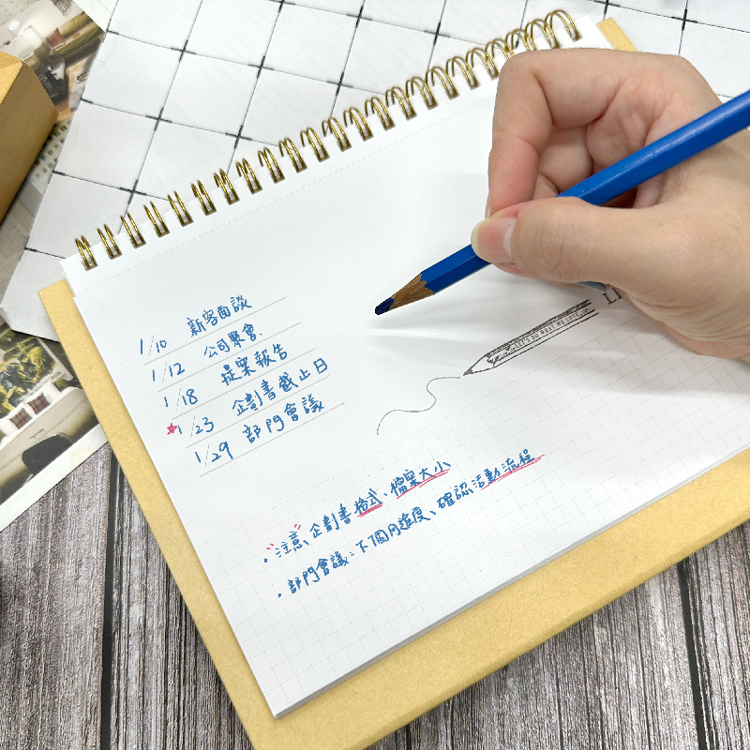 1/10 新客面談
1/12 公司聚會.
1/18 提案報告
★1/23 企劃書截止日
1/29 部門會議
LI
・注意、企劃書格式、檔案大小
・部門會議:下個月進度、確認活動流程